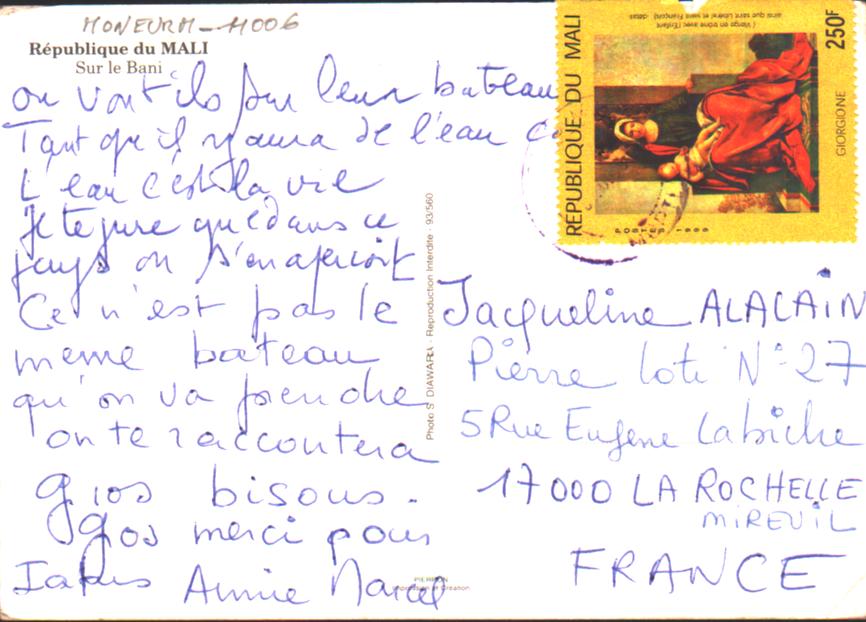 MONEURM-11006
République du MALI
Sur le Bani
où vont ils sur leur bateau
Tant qu'il y aura de l'eau
L'eau c'est la vie
Je te jure que dans ce
pays on s'en aperçoit
Ce n'est pas le
meme bateau
qu'on va prendre
on te raccontera
gros bisous.
gros merci pour
Annie Marcel
Photo S. DIAWARA - Reproduction Interdite - 93/560
RÉPUBLIQUE DU MALI
250F
GIORGIONE
( Vierge en trône avec l'Enfant
ainsi que saint Libéral et saint François) -détail-
POSTES 1999
Jacqueline ALALAIN
Pierre loti N° 27
5 Rue Eugene Labiche
17000 LA ROCHELLE
MIREUIL
FRANCE